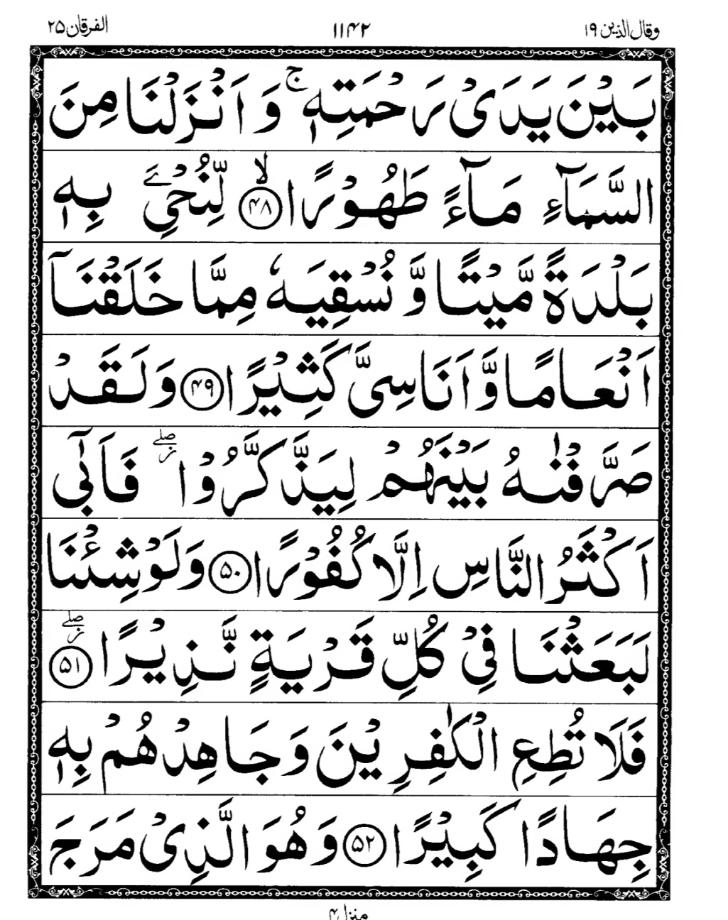 وقال الذين ۱۹ ۱۱۴۲ الفرقان ۲۵
بَيْنَ يَدَىْ رَحْمَتِهٖ ۚ وَ اَنْزَلْنَا مِنَ
السَّمَآءِ مَآءً طَهُوْرًا ۙ‏﴿۴۸﴾ لِّنُحْیِۦَ بِهٖ
بَلْدَةً مَّيْتًا وَّ نُسْقِيَهٗ مِمَّا خَلَقْنَاۤ
اَنْعَامًا وَّاَنَاسِىَّ كَثِيْرًا ﴿۴۹﴾ وَلَقَدْ
صَرَّفْنٰهُ بَيْنَهُمْ لِيَذَّكَّرُوْا ۖ ز فَاَبٰٓى
اَكْثَرُ النَّاسِ اِلَّا كُفُوْرًا ﴿۵۰﴾ وَلَوْ شِئْنَا
لَبَعَثْنَا فِىْ كُلِّ قَرْيَةٍ نَّذِيْرًا ۖ ز ﴿۵۱﴾
فَلَا تُطِعِ الْكٰفِرِيْنَ وَجَاهِدْهُمْ بِهٖ
جِهَادًا كَبِيْرًا ﴿۵۲﴾ وَهُوَ الَّذِىْ مَرَجَ
منزل ۴